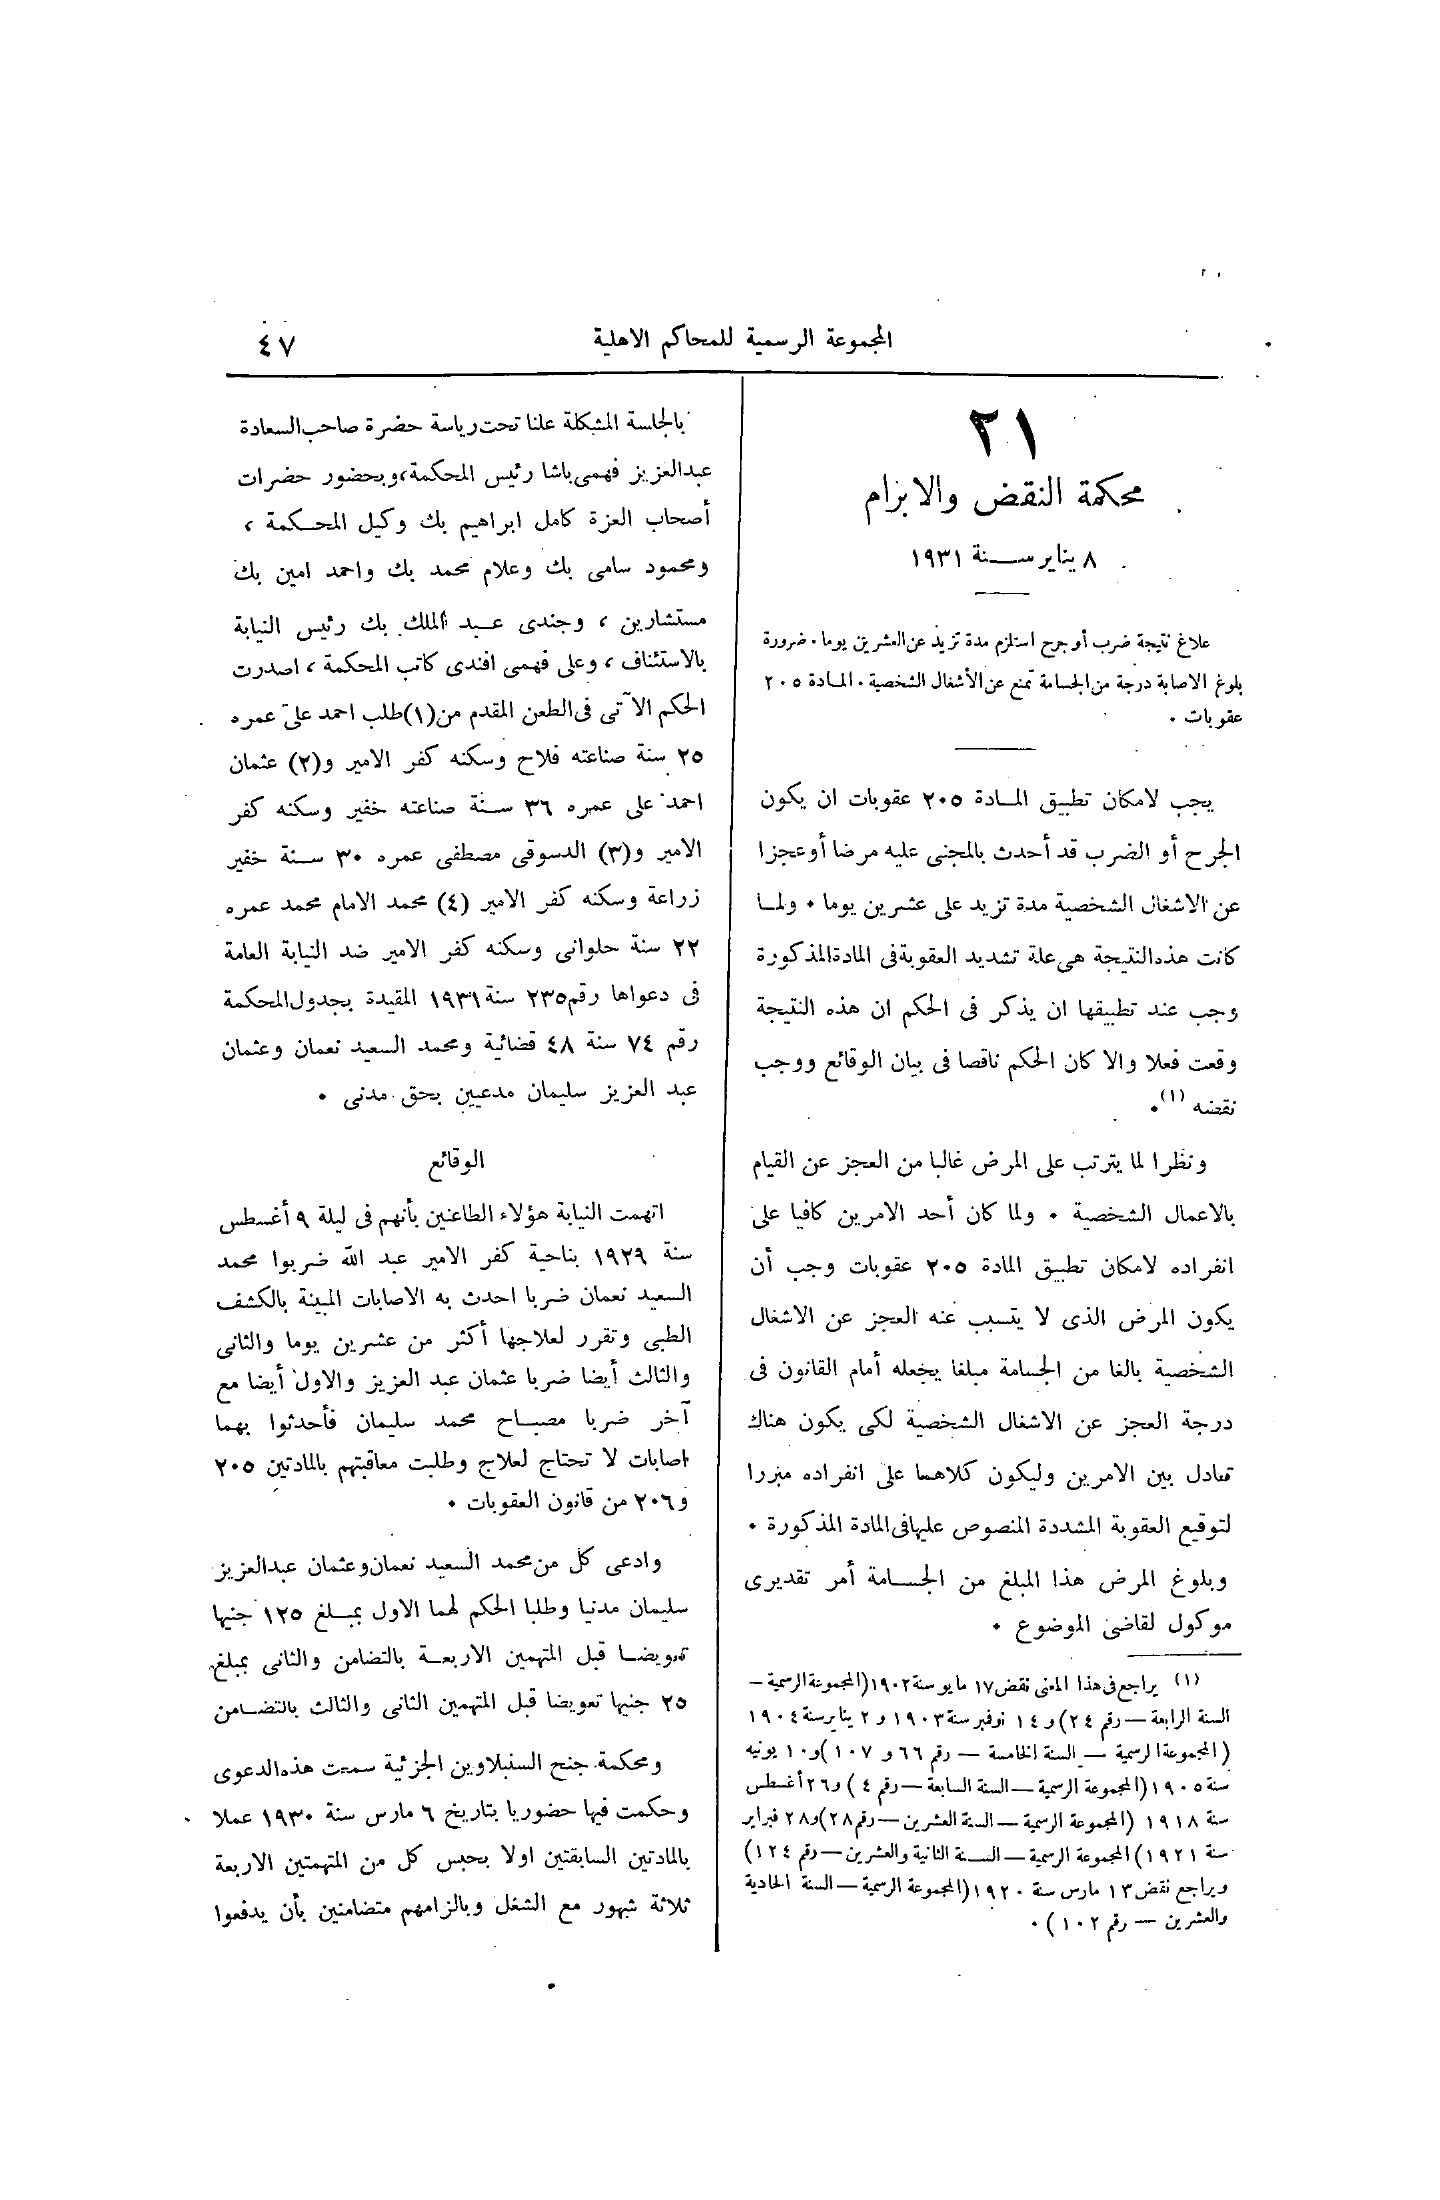 المجموعة الرسمية للمحاكم الاهلية
٤٧
٢١
محكمة النقض والابرام
٨ يناير سنة ١٩٣١
علاغ نتيجة ضرب أو جرح استلزم مدة تزيد عن العشرين يوما . ضرورة
بلوغ الاصابة درجة من الجسامة تمنع عن الأشغال الشخصية . المادة ٢٠٥
عقوبات .
يجب لامكان تطبيق المادة ٢٠٥ عقوبات ان يكون
الجرح أو الضرب قد أحدث بالمجنى عليه مرضا أو عجزا
عن الاشغال الشخصية مدة تزيد على عشرين يوما . ولما
كانت هذه النتيجة هى علة تشديد العقوبة فى المادة المذكورة
وجب عند تطبيقها ان يذكر فى الحكم ان هذه النتيجة
وقعت فعلا والا كان الحكم ناقصا فى بيان الوقائع ووجب
نقضه (١).
ونظرا لما يترتب على المرض غالبا من العجز عن القيام
بالاعمال الشخصية . ولما كان أحد الامرين كافيا على
انفراده لامكان تطبيق المادة ٢٠٥ عقوبات وجب أن
يكون المرض الذى لا يتسبب عنه العجز عن الاشغال
الشخصية بالغا من الجسامة مبلغا يجعله أمام القانون فى
درجة العجز عن الاشغال الشخصية لكى يكون هناك
تعادل بين الامرين وليكون كلاهما على انفراده مبررا
لتوقيع العقوبة المشددة المنصوص عليها فى المادة المذكورة .
وبلوغ المرض هذا المبلغ من الجسامة أمر تقديرى
موكول لقاضى الموضوع .
(١) يراجع فى هذا المعنى نقض ١٧ مايو سنة ١٩٠٢ (المجموعة الرسمية —
السنة الرابعة — رقم ٢٤) و ١٤ نوفمبر سنة ١٩٠٣ و ٢ يناير سنة ١٩٠٤
(المجموعة الرسمية — السنة الخامسة — رقم ٦٦ و ١٠٧) و ١٠ يونيه
سنة ١٩٠٥ (المجموعة الرسمية — السنة السابعة — رقم ٤) و ٢٦ أغسطس
سنة ١٩١٨ (المجموعة الرسمية — السنة العشرين — رقم ٢٨) و ٢٨ فبراير
سنة ١٩٢١ (المجموعة الرسمية — السنة الثانية والعشرين — رقم ١٢٤)
ويراجع نقض ١٣ مارس سنة ١٩٢٠ (المجموعة الرسمية — السنة الحادية
والعشرين — رقم ١٠٢) .
بالجلسة المشكلة علنا تحت رياسة حضرة صاحب السعادة
عبد العزيز فهمى باشا رئيس المحكمة، وبحضور حضرات
أصحاب العزة كامل ابراهيم بك وكيل المحكمة ،
ومحمود سامى بك وعلام محمد بك واحمد امين بك
مستشارين ، وجندى عبد الملك بك رئيس النيابة
بالاستئناف ، وعلى فهمى افندى كاتب المحكمة ، اصدرت
الحكم الآتى فى الطعن المقدم من (١) طلب احمد على عمره
٢٥ سنة صناعته فلاح وسكنه كفر الامير و(٢) عثمان
احمد على عمره ٣٦ سنة صناعته خفير وسكنه كفر
الامير و(٣) الدسوقى مصطفى عمره ٣٠ سنة خفير
زراعة وسكنه كفر الامير (٤) محمد الامام محمد عمره
٢٢ سنة حلوانى وسكنه كفر الامير ضد النيابة العامة
فى دعواها رقم ٢٣٥ سنة ١٩٣١ المقيدة بجدول المحكمة
رقم ٧٤ سنة ٤٨ قضائية ومحمد السعيد نعمان وعثمان
عبد العزيز سليمان مدعيين بحق مدنى .
الوقائع
اتهمت النيابة هؤلاء الطاعنين بأنهم فى ليلة ٩ أغسطس
سنة ١٩٢٩ بناحية كفر الامير عبد الله ضربوا محمد
السعيد نعمان ضربا احدث به الاصابات المبينة بالكشف
الطبى وتقرر لعلاجها أكثر من عشرين يوما والثانى
والثالث أيضا ضربا عثمان عبد العزيز والاول أيضا مع
آخر ضربا مصباح محمد سليمان فأحدثوا بهما
اصابات لا تحتاج لعلاج وطلبت معاقبتهم بالمادتين ٢٠٥
و٢٠٦ من قانون العقوبات .
وادعى كل من محمد السعيد نعمان وعثمان عبد العزيز
سليمان مدنيا وطلبا الحكم لهما الاول بمبلغ ١٢٥ جنيها
تعويضا قبل المتهمين الاربعة بالتضامن والثانى بمبلغ
٢٥ جنيها تعويضا قبل المتهمين الثانى والثالث بالتضامن
ومحكمة جنح السنبلاوين الجزئية سمعت هذه الدعوى
وحكمت فيها حضوريا بتاريخ ٦ مارس سنة ١٩٣٠ عملا
بالمادتين السابقتين اولا بحبس كل من المتهمتين الاربعة
ثلاثة شهور مع الشغل وبالزامهم متضامنين بأن يدفعوا